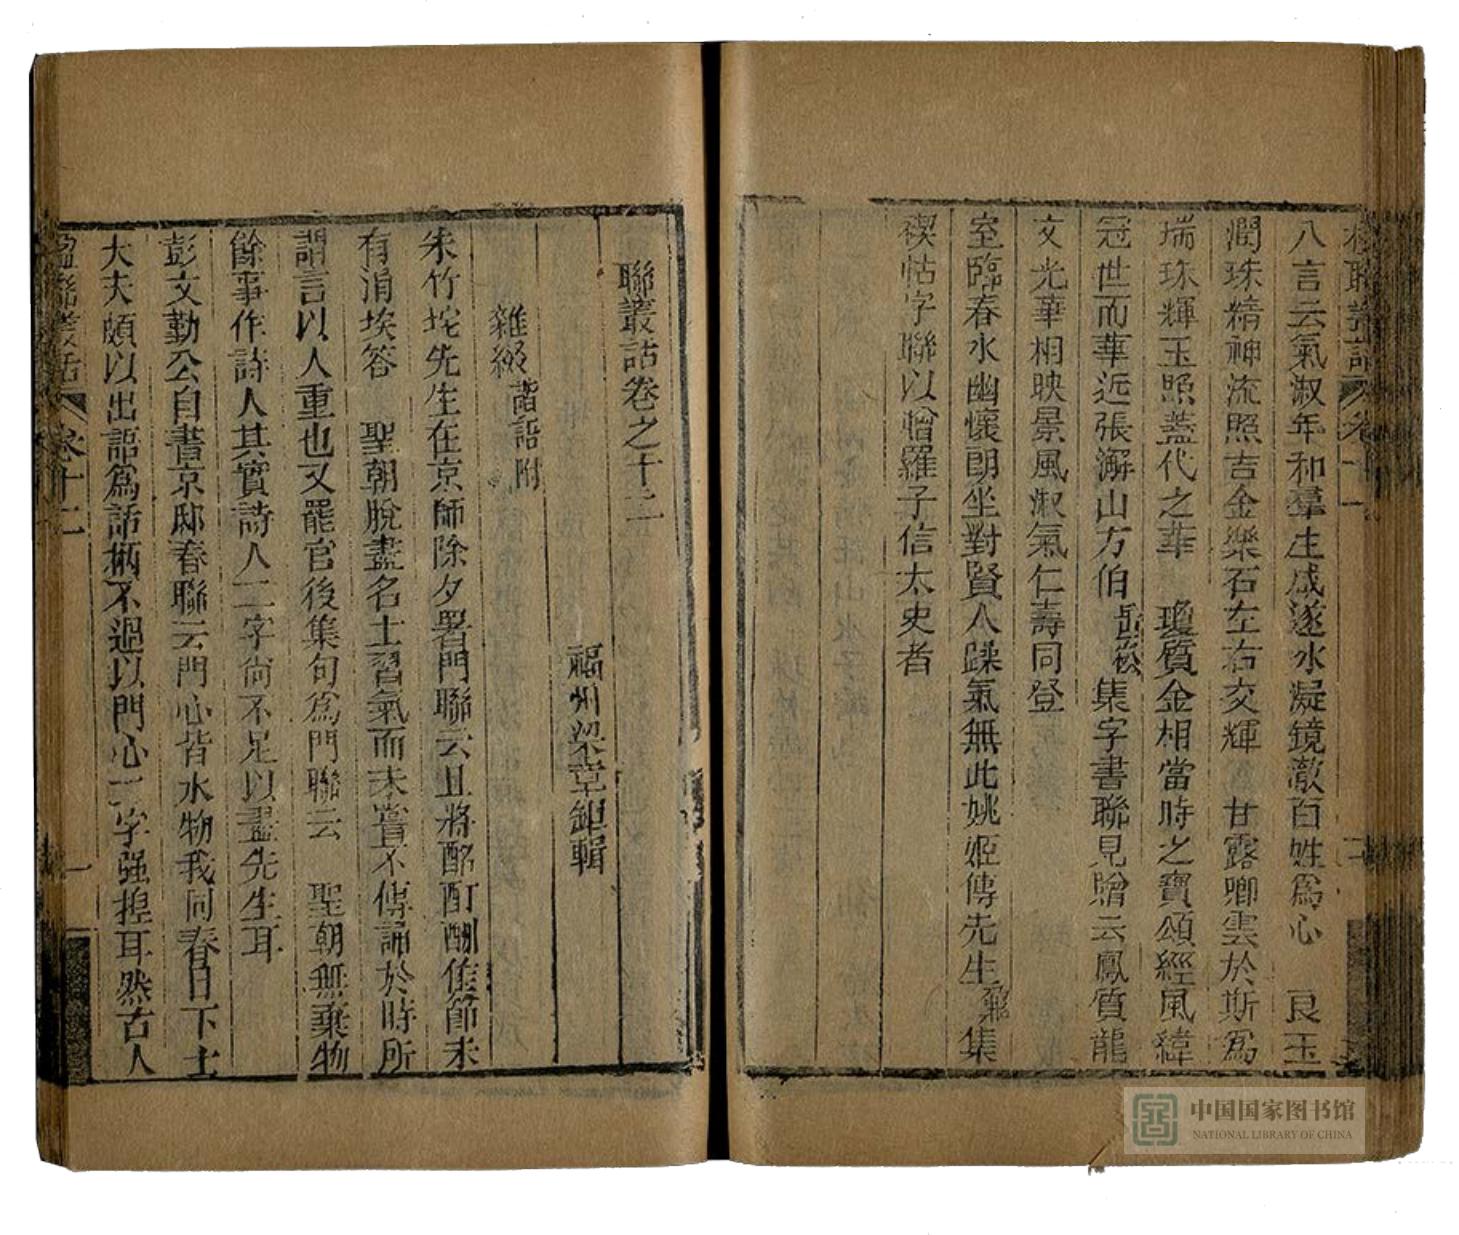 八言云氣淑年和羣生咸遂水凝鏡澈百姓爲心　良玉
潤珠精神流照吉金樂石左右交輝　甘露卿雲於斯爲
瑞珠輝玉照蓋代之華　瓊質金相當時之寶頌經風緯
冠世而華近張澥山方伯岳崧集字書聯見贈云鳳質龍
文光華相映景風淑氣仁壽同登
室臨春水幽懷朗坐對賢人躁氣無此姚姬傳先生鼐集
禊帖字聯以贈羅子信太史者
聯叢話卷之十二
福州梁章鉅輯
雜綴諧語附
朱竹垞先生在京師除夕署門聯云且將酩酊酬佳節未
有涓埃答　聖朝脫盡名士習氣而未嘗不傳誦於時所
謂言以人重也又罷官後集句爲門聯云　聖朝無棄物
餘事作詩人其實詩人二字尚不足以盡先生耳
彭文勤公自書京邸春聯云門心皆水物我同春日下士
大夫頗以出語爲話柄不過以門心二字强揑耳然古人
楹聯叢話　卷十二　一
中国国家图书馆
NATIONAL LIBRARY OF CHINA